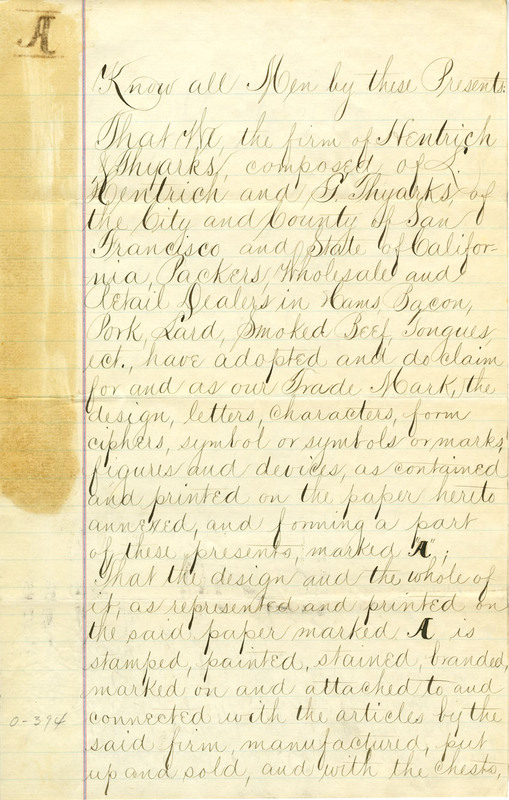 A
Know all Men by these Presents:
That We, the firm of Hentrich
& Thyarks, composed of S.
Hentrich and T. Thyarks, of
the City and County of San
Francisco and State of Califor-
nia, Packers, Wholesale and
Retail Dealers in Hams, Bacon,
Pork, Lard, Smoked Beef, Tongues,
ect., have adopted and do claim
for and as our Trade Mark, the
design, letters, characters, form
ciphers, symbol or symbols or marks,
figures and devices, as contained
and printed on the paper hereto
annexed, and forming a part
of these presents, marked "A";
That the design and the whole of
it, as represented and printed on
the said paper marked A is
stamped, painted, stained, branded,
marked on and attached to and
0-394
connected with the articles by the
said firm, manufactured, put
up and sold, and with the chests,